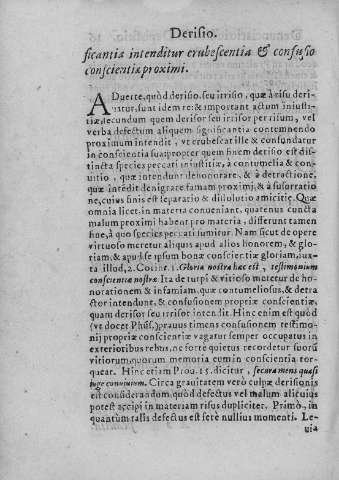 Derisio.
ficantia intenditur erubescentia & confusio
conscientiæ proximi.
ADuerte, quòd derisio, seu irrisio, quæ à risu deri-
uatur, sunt idem re: & important actum iniusti-
tiæ, secundum quem derisor seu irrisor per risum, vel
verba defectum aliquem significantia contemnendo
proximum intendit, vt erubescat ille & confundatur
in conscientia sua: propter quem finem derisio est dis-
tincta species peccati iniustitiæ, à contumelia & con-
uitio, quæ intendunt dehonorare, & à detractione,
quæ intēdit denigrare famam proximi, & à susurratio
ne, cuius finis est separatio & dissolutio amicitiæ. Quæ
omnia licet, in materia conueniant, quatenus cuncta
malum proximi habent pro materia, differunt tamen
fine, à quo species peccati sumitur. Nam sicut de opere
virtuoso meretur aliquis apud alios honorem, & glo-
riam, & apud se ipsum bonæ conscientiæ gloriam, iux-
ta illud, 2. Corint. 1. Gloria nostra hæc est, testimonium
conscientiæ nostræ. Ita de turpi & vitioso meretur de ho-
norationem & infamiam, quæ contumeliosus, & detra
ctor intendunt, & confusionem propriæ conscientiæ,
quam derisor seu irrisor intendit. Hinc enim est quòd
(vt docet Phūs.) prauus timens confusionem testimo-
nij propriæ conscientiæ vagatur semper occupatus in
exterioribus rebus, ne forte quietus recordetur suorū
vitiorum, quorum memoria eum in conscientia tor-
queat. Hinc etiam Prou. 15. dicitur, secura mens quasi
iuge conuiuium. Circa grauitatem verò culpæ derisionis
est considerandum, quòd defectus vel malum alicuius
potest accipi in materiam risus dupliciter. Primò, in
quantùm talis defectus est ferè nullius momenti. Le-
uia